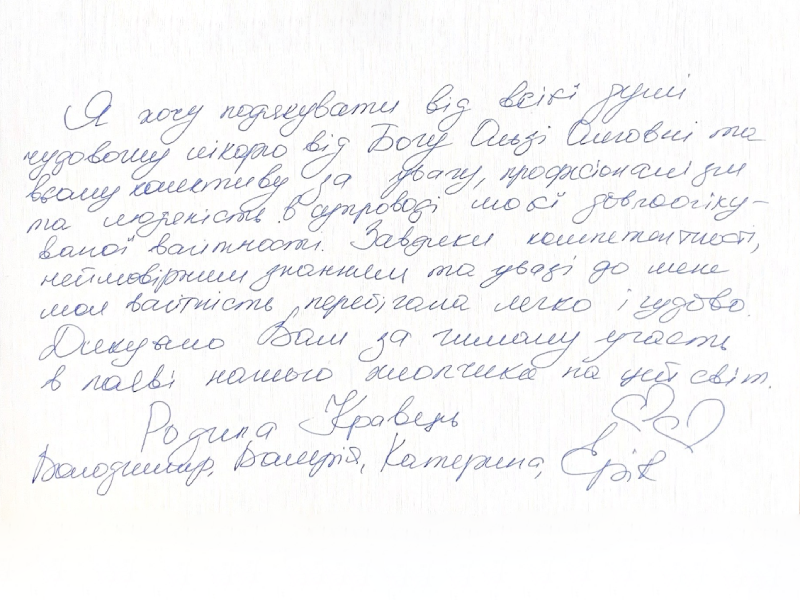 Я хочу подякувати від всієї душі
чудовому лікарю від Богу Ользі Олеговні та
всьому колективу за увагу, професіоналізм
та людяність в супроводі моєї довгоочіку-
ваної вагітності. Завдяки компетентності,
неймовірним знанням та увазі до мене
моя вагітність перебігала легко і чудово.
Дякуємо Вам за чималу участь
в появі нашого хлопчика на цей світ.
Родина Кравець
Володимир, Валерій, Катерина, Ерік